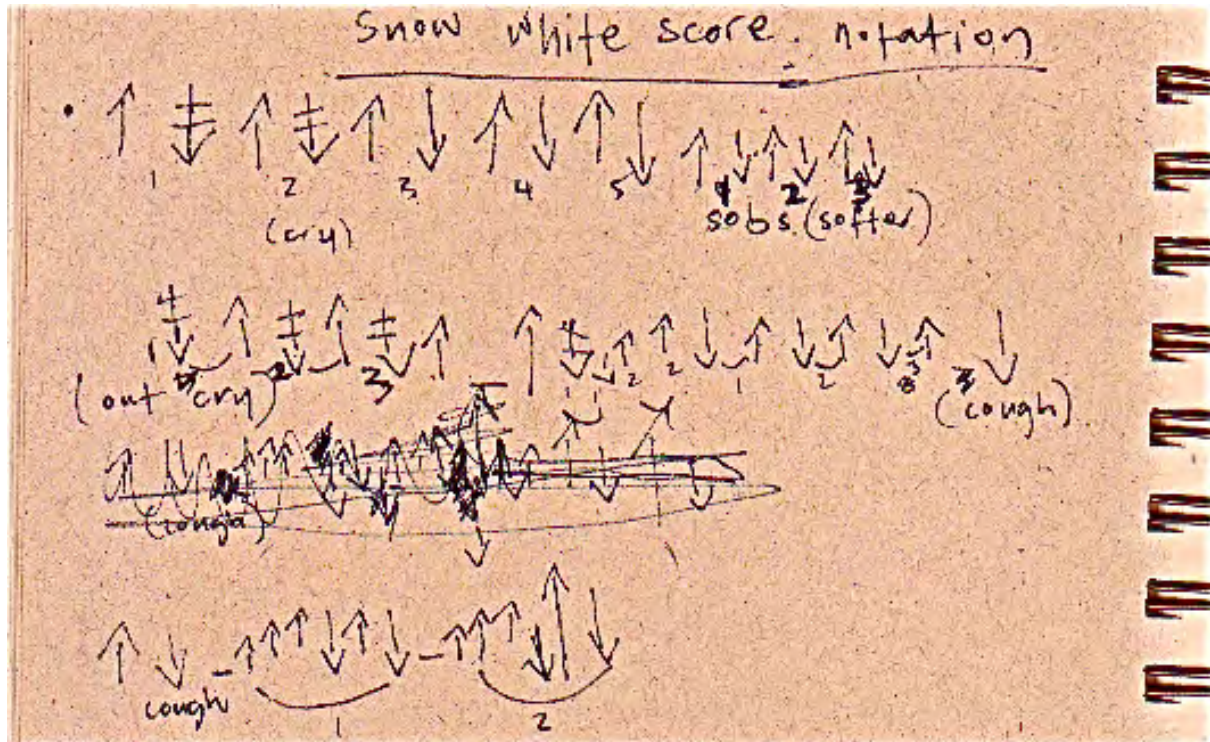 Snow white score. notation
↑ ⇟ ↑ ⇟ ↑ ↓ ↑ ↓ ↑ ↓ ↑ ↓ ↑ ↓ ↑ ↓
1 2 3 4 5 1 2 3
(cry) sobs. (softer)
1 2 3 1 1 2 2 1 2 3
(out cry) (cough)
(cough)
cough
1 2